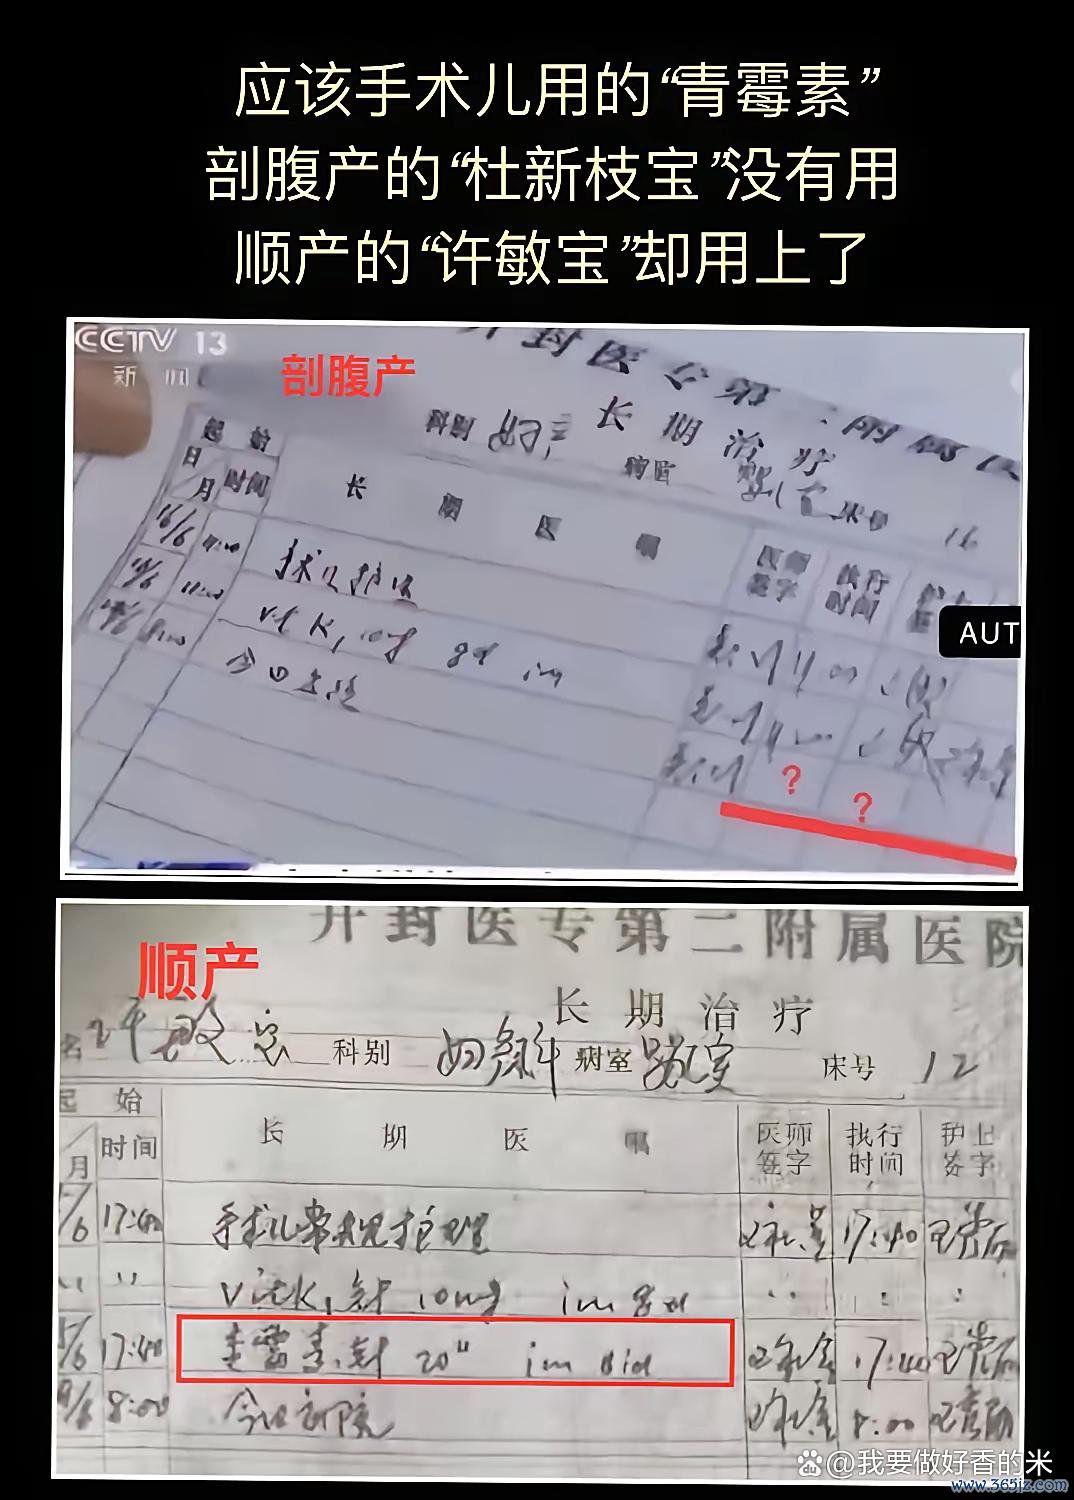 应该手术儿用的“青霉素”
剖腹产的“杜新枝宝”没有用
顺产的“许敏宝”却用上了
CCTV 13
新闻
剖腹产
开封医专第二附属医
长期治疗
科别 妇产 病室 婴儿室 床号 16
起始
日/月 时间 长期医嘱 医师签字 执行时间 护士
16/6 11:00 手术儿护理
11:00 vit K1 10mg qd im
8:00 今日出院
AUT
? ?
开封医专第二附属医院
顺产
长期治疗
名 许敏宝 科别 妇产科 病室 婴儿室 床号 12
起始
月 时间 长期医嘱 医师签字 执行时间 护士签字
/6 17:40 手术儿常规护理 17:40
〃 〃 vitK1针 10mg im qd
/6 17:40 青霉素针 20" im Bid 17:40
/6 8:00 今日出院 8:00
@我要做好香的米
www.365jz.com